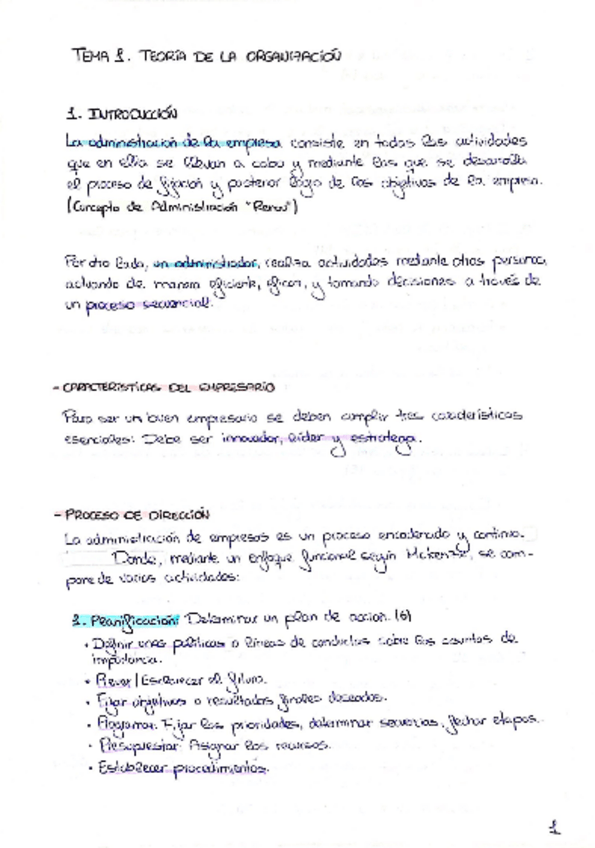 TEMA 1. TEORÍA DE LA ORGANIZACIÓN
1. INTRODUCCIÓN
La administración de la empresa consiste en todas las actividades
que en ella se llevan a cabo y mediante las que se desarrolla
el proceso de fijación y posterior logro de los objetivos de la empresa.
(Concepto de Administración "Renau")
Por otro lado, un administrador, realiza actividades mediante otras personas,
actuando de manera eficiente, eficaz, y tomando decisiones a través de
un proceso secuencial.
- CARACTERÍSTICAS DEL EMPRESARIO
Para ser un buen empresario se deben cumplir tres características
esenciales: Debe ser innovador, líder y estratega.
- PROCESO DE DIRECCIÓN
La administración de empresas es un proceso encadenado y continuo.
Donde, mediante un enfoque funcional según Mckenzie, se com-
pone de varias actividades:
1. Planificación: Determinar un plan de acción. (6)
• Definir unas políticas o líneas de conductas sobre los asuntos de
importancia.
• Prever / Esclarecer el futuro.
• Fijar objetivos o resultados finales deseados.
• Programar. Fijar las prioridades, determinar secuencias, fechar etapas.
• Presupuestar. Asignar los recursos.
• Establecer procedimientos.
1